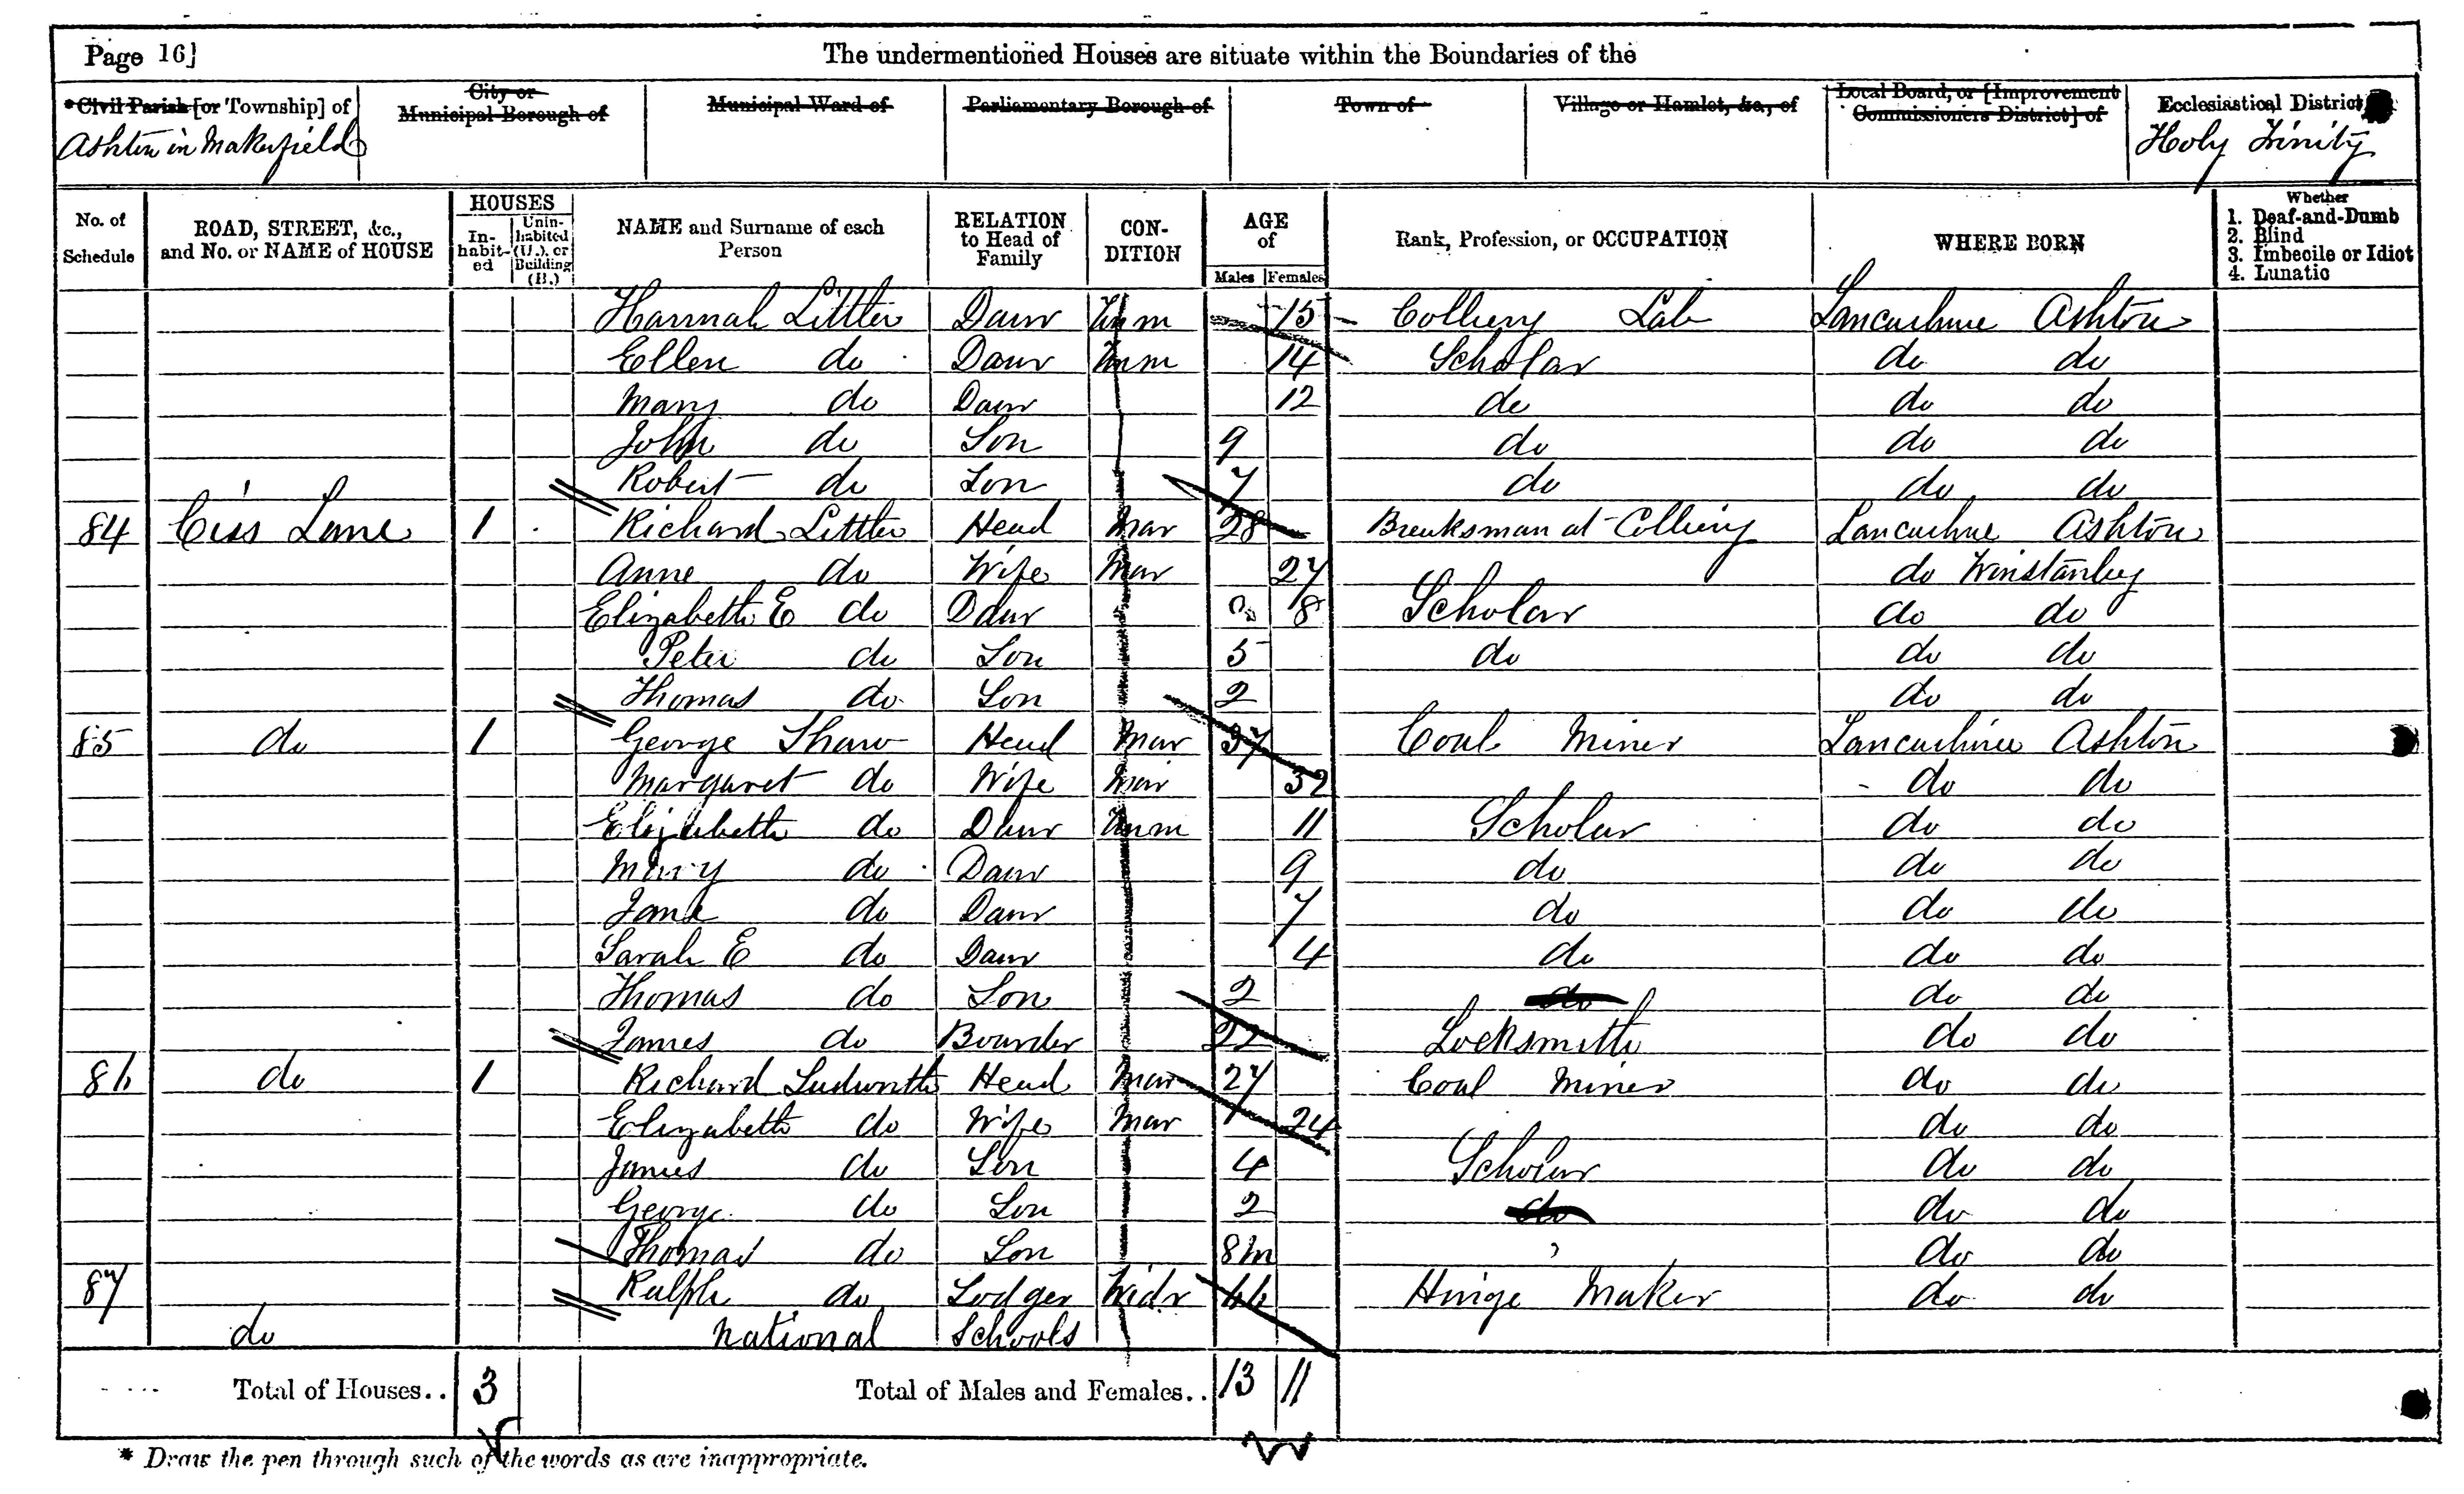 Page 16] The undermentioned Houses are situate within the Boundaries of the
*Civil Parish [or Township] of City or Municipal Borough of Municipal Ward of Parliamentary Borough of Town of Village or Hamlet, &c., of Local Board, or [Improvement Commissioners District] of Ecclesiastical District
Ashton in Makerfield Holy Trinity
No. of Schedule ROAD, STREET, &c., and No. or NAME of HOUSE HOUSES Inhabited Uninhabited (U.), or Building (B.) NAME and Surname of each Person RELATION to Head of Family CONDITION AGE of Males Females Rank, Profession, or OCCUPATION WHERE BORN Whether 1. Deaf-and-Dumb 2. Blind 3. Imbecile or Idiot 4. Lunatic
Hannah Littler Daur Unm 15 Colliery Lab Lancashire Ashton
Ellen do Daur Unm 14 Scholar do do
Mary do Daur 12 do do do
John do Son 9 do do do
Robert do Son 7 do do do
84 Ciss Lane 1 Richard Littler Head Mar 28 Breaksman at Colliery Lancashire Ashton
Anne do Wife Mar 27 do Winstanley
Elizabeth E do Daur 8 Scholar do do
Peter do Son 5 do do do
Thomas do Son 2 do do
85 do 1 George Shaw Head Mar 37 Coal Miner Lancashire Ashton
Margaret do Wife Mar 32 do do
Elizabeth do Daur Unm 11 Scholar do do
Mary do Daur 9 do do do
Jane do Daur 7 do do do
Sarah E do Daur 4 do do do
Thomas do Son 2 do do do
James do Boarder 22 Locksmith do do
86 do 1 Richard Ludworth Head Mar 27 Coal Miner do do
Elizabeth do Wife Mar 24 do do
James do Son 4 Scholar do do
George do Son 2 do do do
Thomas do Son 8m do do
87 Ralph do Lodger Widr Hinge Maker do do
do National Schools
Total of Houses.. 3 Total of Males and Females.. 13 11
* Draw the pen through such of the words as are inappropriate.